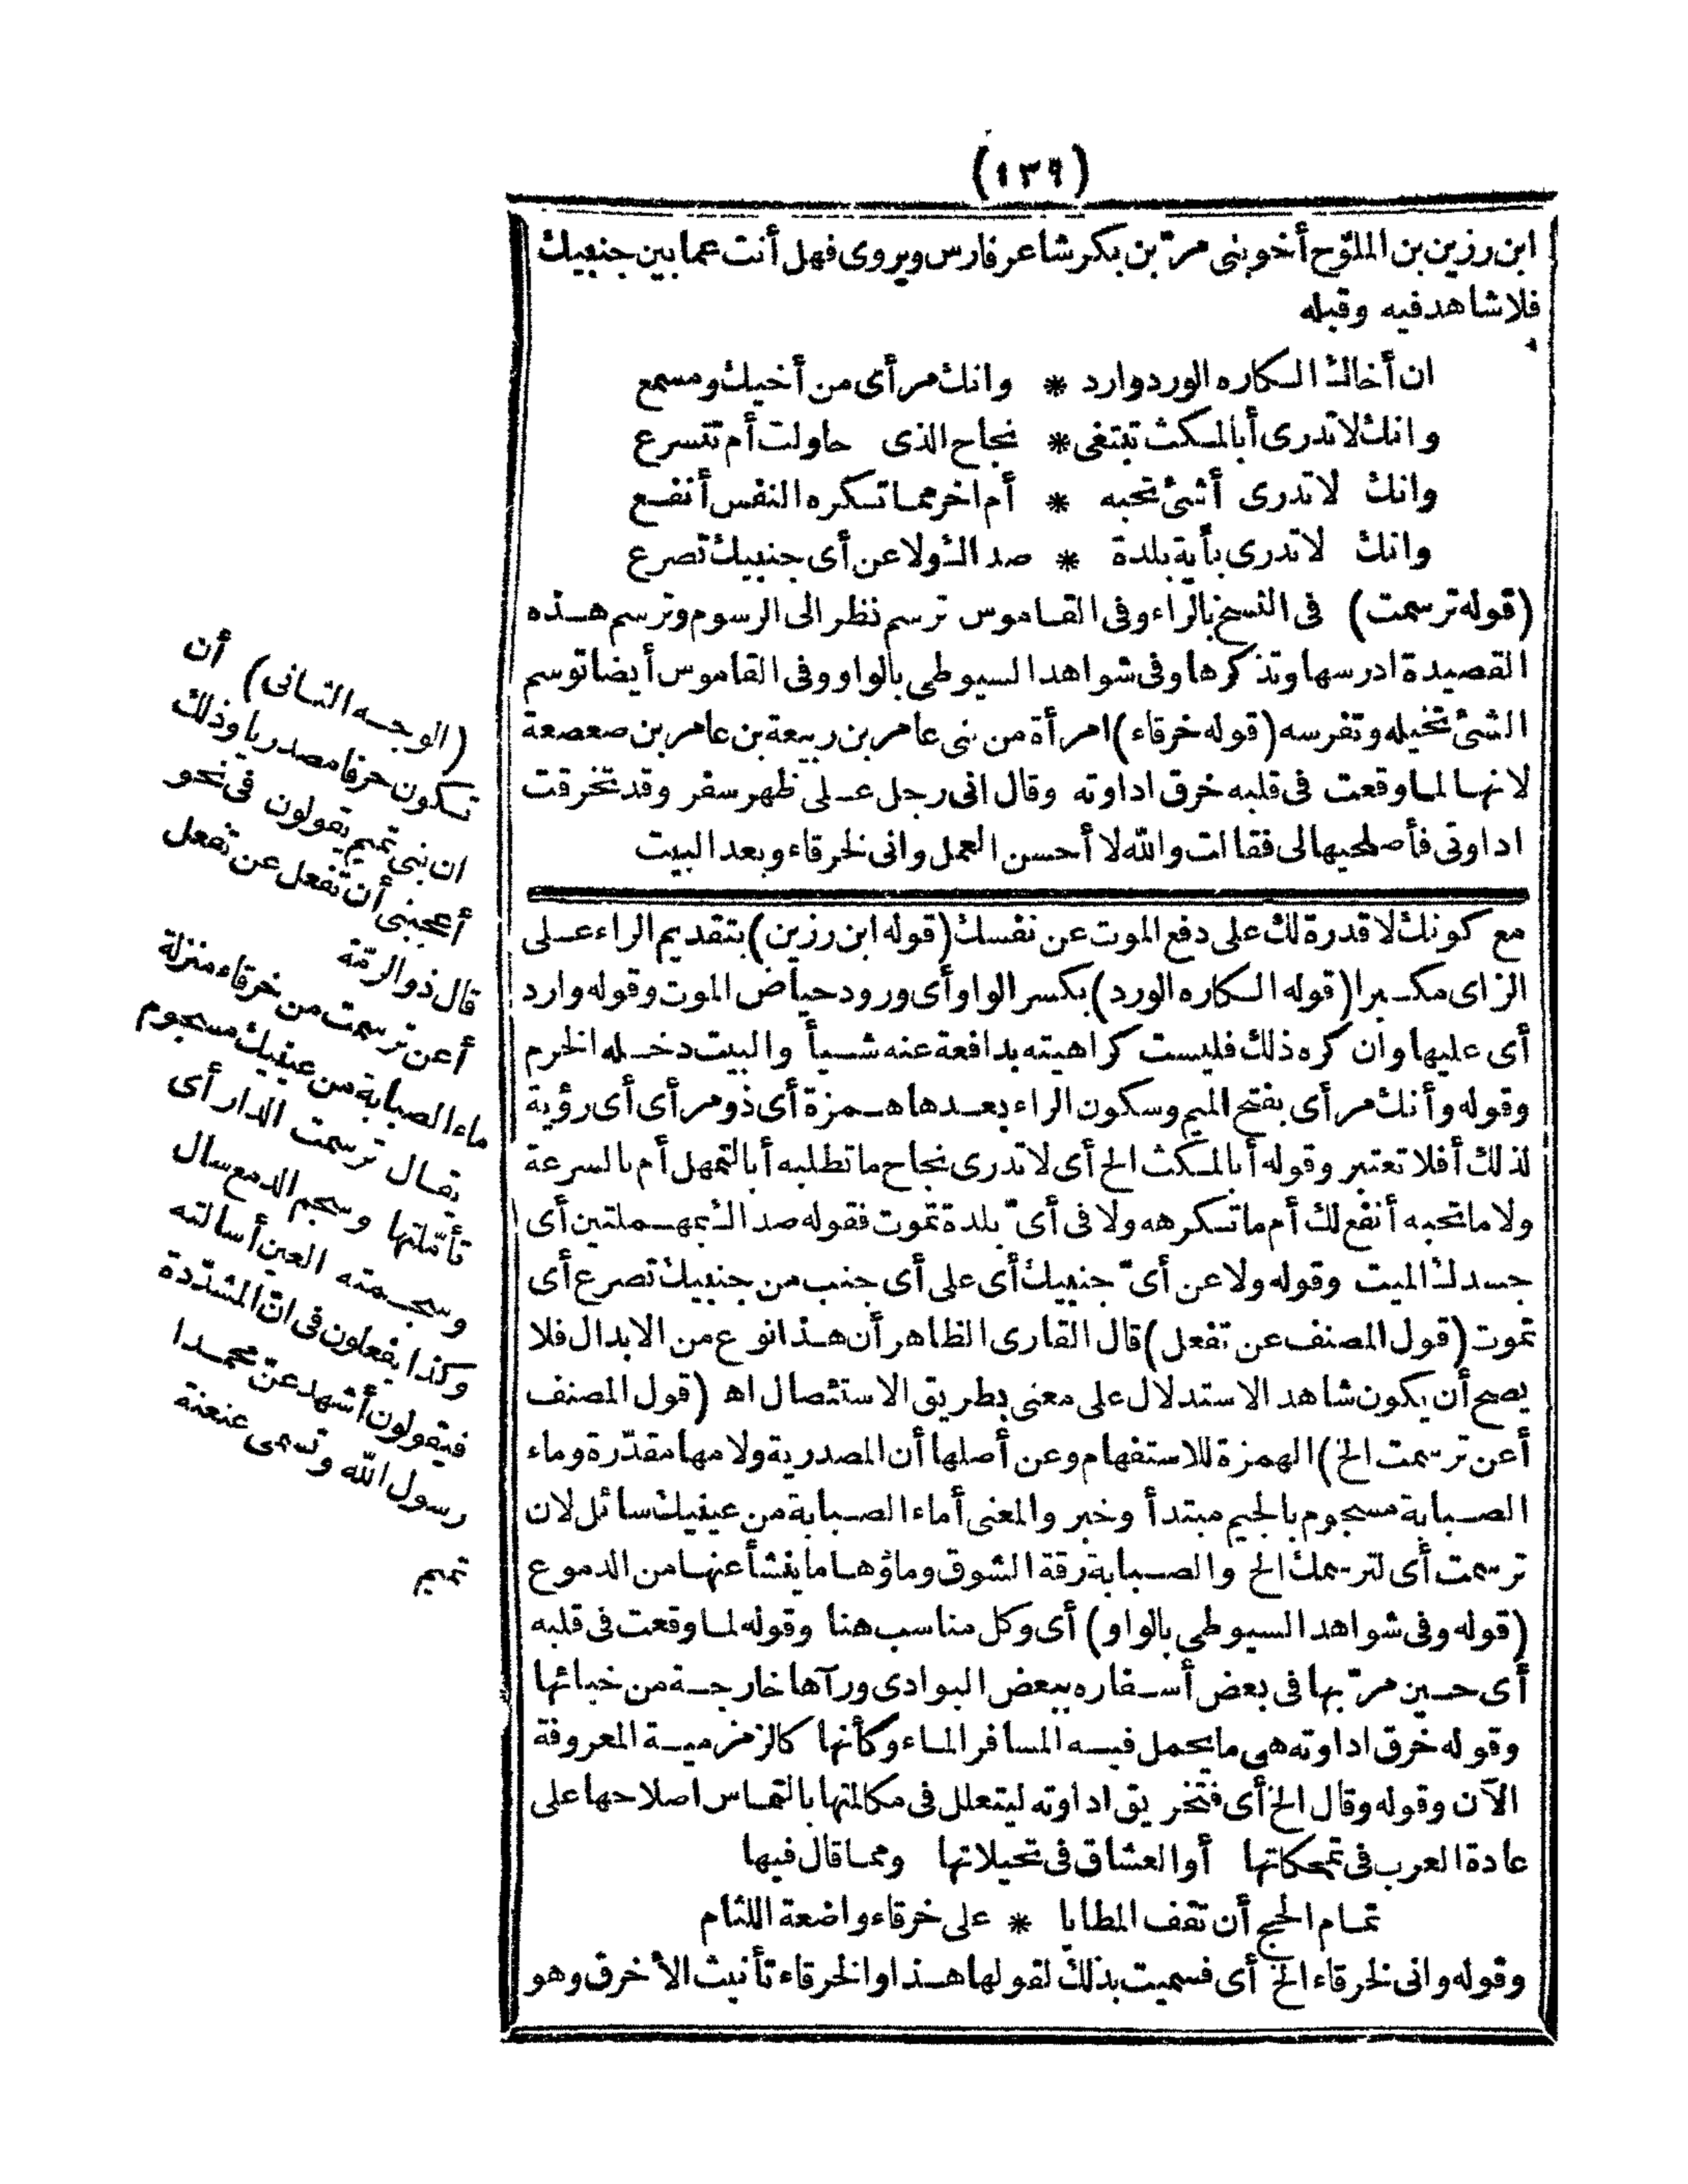 (١٣٦)
ابن رزين بن الملوّح أخو بنى مرّ بن بكر شاعر فارس ويروى فهل أنت عما بين جنبيك
فلا شاهد فيه وقبله
ان أخاك الكاره الورد وارد * وانك مرأى من أخيك ومسمع
وانك لا تدرى أبالمكث تبتغى * نجاح الذى حاولت أم تتسرع
وانك لا تدرى أشئ تحبه * أم اخر مما تكره النفس أنفع
وانك لا تدرى بأية بلدة * صداك ولا عن أى جنبيك تصرع
(قوله ترسمت) فى النسخ بالراء وفى القاموس ترسم نظر الى الرسوم وترسم هذه
القصيدة ادرسها وتذكرها وفى شواهد السيوطى بالواو وفى القاموس أيضا توسم
الشئ تخيله وتفرسه (قوله خرقاء) امرأة من بنى عامر بن ربيعة بن عامر بن صعصعة
لانها لما وقعت فى قلبه خرق اداوته وقال انى رجل على ظهر سفر وقد تخرقت
اداوتى فأصلحيها لى فقالت والله لا أحسن العمل وانى لخرقاء وبعد البيت
مع كونك لا قدرة لك على دفع الموت عن نفسك (قوله ابن رزين) بتقديم الراء على
الزاى مكبرا (قوله الكاره الورد) بكسر الواو أى ورود حياض الموت وقوله وارد
أى عليها وان كره ذلك فليست كراهيته بدافعة عنه شيأ والبيت دخله الخرم
وقوله وأنك مرأى بفتح الميم وسكون الراء بعدها همزة أى ذو مرأى أى رؤية
لذلك أفلا تعتبر وقوله أبالمكث الخ أى لا تدرى نجاح ما تطلبه أبالتمهل أم بالسرعة
ولا ما تحبه أنفع لك أم ما تكرهه ولا فى أىّ بلدة تموت فقوله صداك بمهملتين أى
جسدك الميت وقوله ولا عن أىّ جنبيك أى على أى جنب من جنبيك تصرع أى
تموت (قول المصنف عن تفعل) قال القارى الظاهر أن هذا نوع من الابدال فلا
يصح أن يكون شاهد الاستدلال على معنى بطريق الاستئصال اه (قول المصنف
أعن ترسمت الخ) الهمزة للاستفهام وعن أصلها أن المصدرية ولامها مقدّرة وماء
الصبابة مسجوم بالجيم مبتدأ وخبر والمعنى أماء الصبابة من عينيك سائل لان
ترسمت أى لترسمك الخ والصبابة رقة الشوق وماؤها ما ينشأ عنها من الدموع
(قوله وفى شواهد السيوطى بالواو) أى وكل مناسب هنا وقوله لما وقعت فى قلبه
أى حين مرّ بها فى بعض أسفاره ببعض البوادى ورآها خارجة من خبائها
وقوله خرق اداوته هى ما يحمل فيه المسافر الماء وكأنها كالزمزمية المعروفة
الآن وقوله وقال الخ أى فتخريق اداوته ليتعلل فى مكالمتها بالتماس اصلاحها على
عادة العرب فى تمحكاتها أو العشاق فى تحيلاتها ومما قال فيها
تمام الحج أن تقف المطايا * على خرقاء واضعة اللثام
وقوله وانى لخرقاء الخ أى فسميت بذلك لقولها هذا والخرقاء تأنيث الأخرق وهو
(الوجه الثانى) أن
تكون حرفا مصدريا وذلك
ان بنى تميم يقولون فى نحو
أعجبنى أن تفعل عن تفعل
قال ذو الرمّة
أعن ترسمت من خرقاء منزلة
ماء الصبابة من عينيك مسجوم
يقال ترسمت الدار أى
تأمّلتها وسجم الدمع سال
وسجمته العين أسالته
وكذا يفعلون فى انّ المشدّدة
فيقولون أشهد عنّ محمدا
رسول الله وتسمى عنعنة
تميم